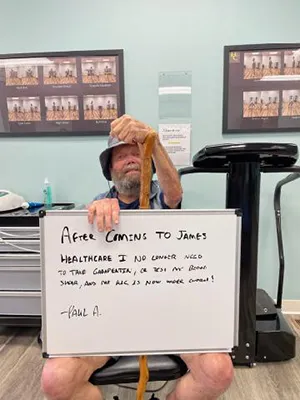 AFTER COMING TO JAMES
HEALTHCARE I NO LONGER NEED
TO TAKE GABAPENTIN, OR TEST MY BLOOD
SUGAR, AND MY A1C IS NOW UNDER CONTROL!
-PAUL A.